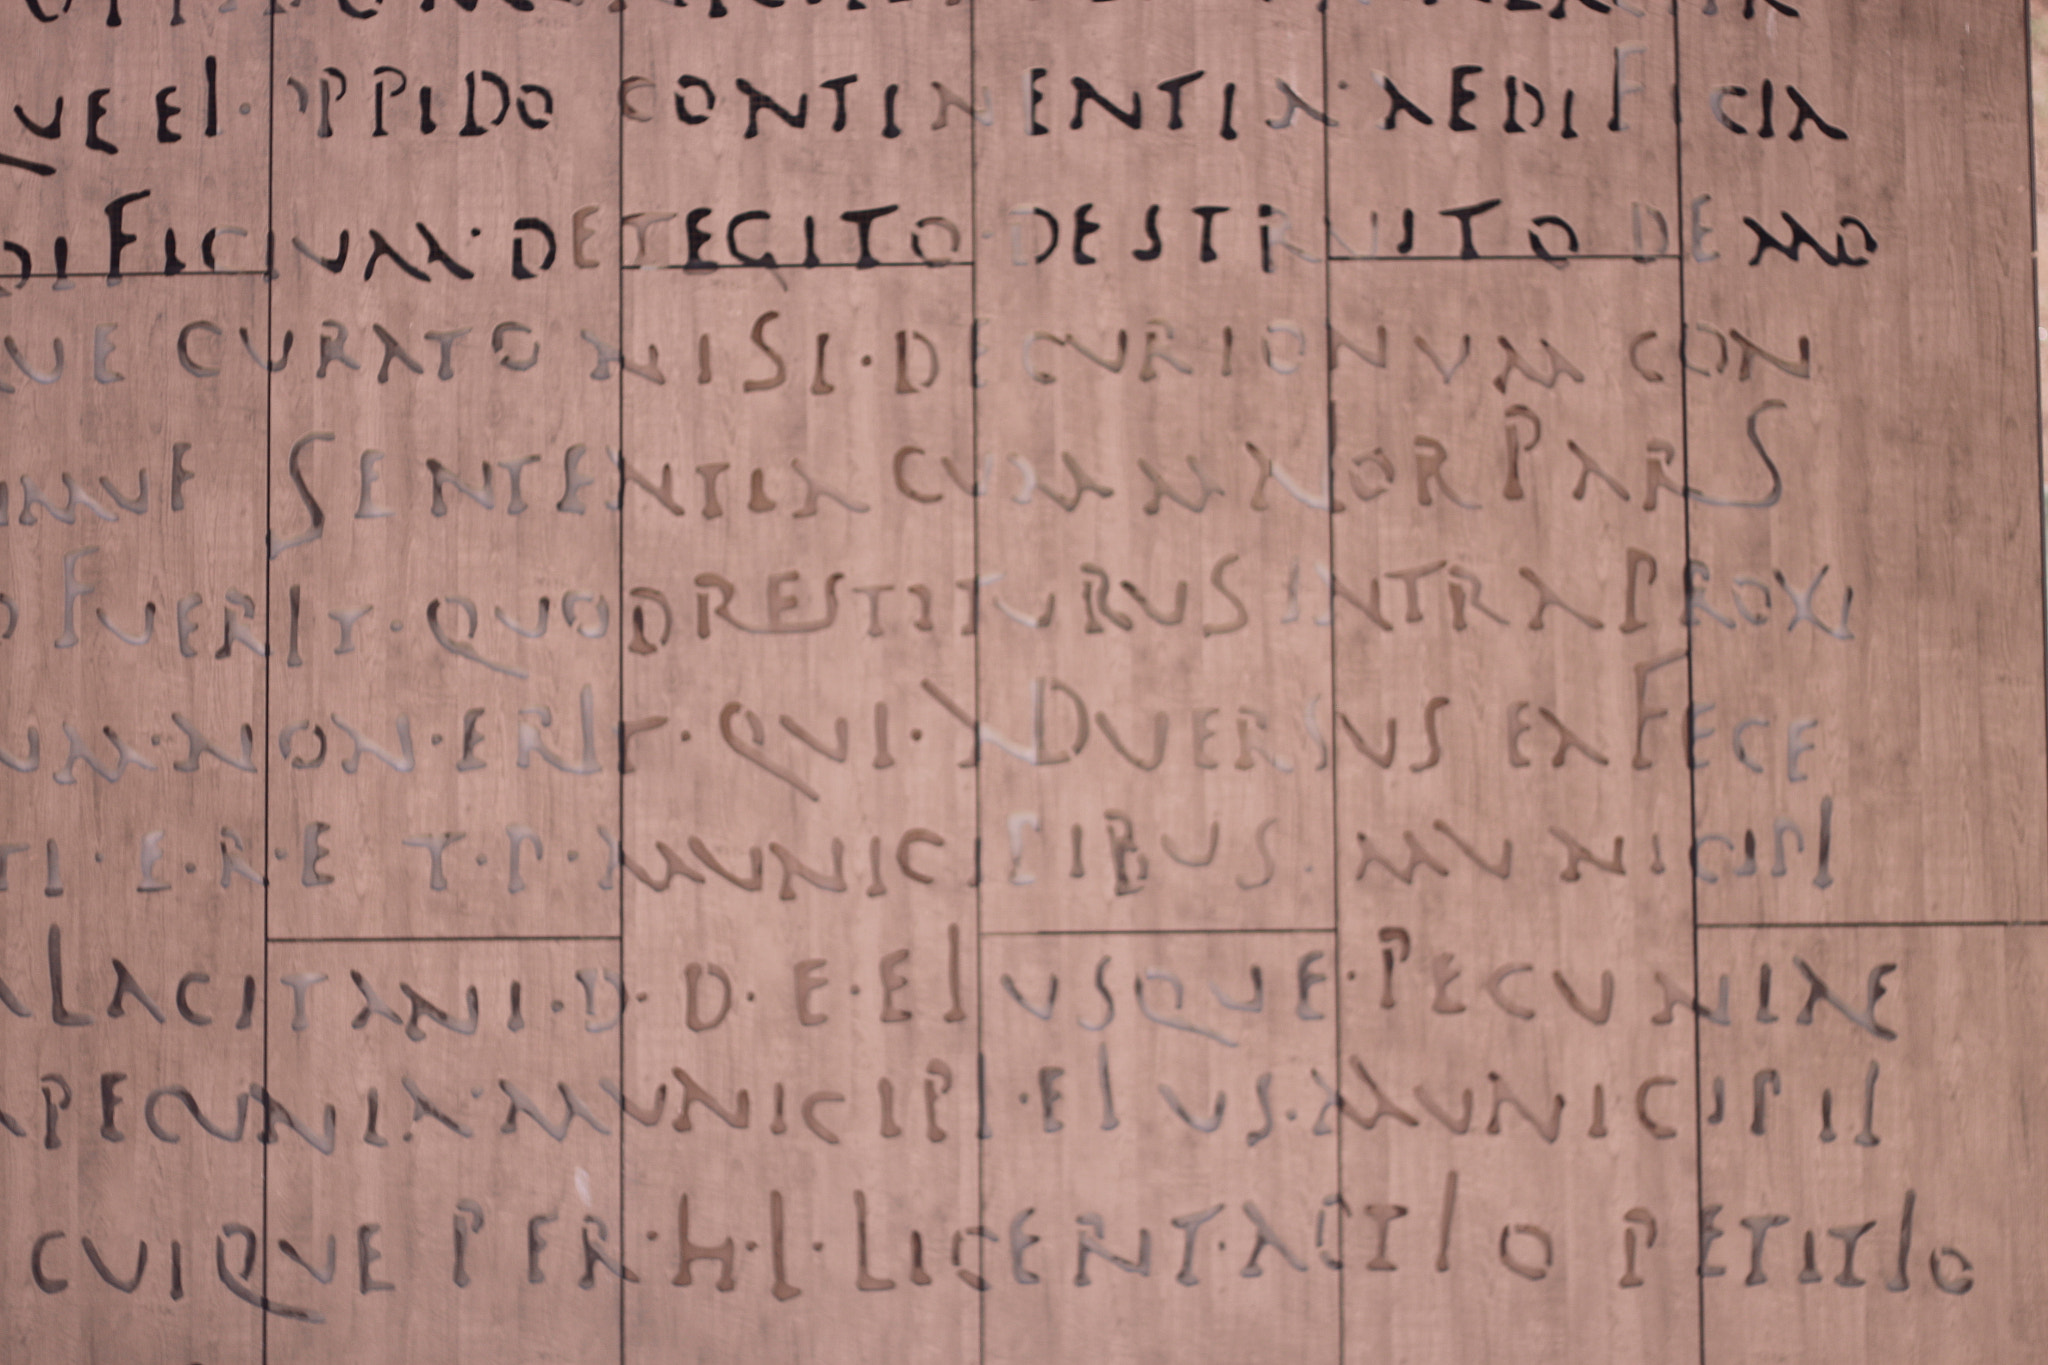 QUE EI· OPPIDO CONTINENTIA· AEDIFICIA
DIFICIUM· DETEGITO· DESTRUITO DEMO
QUE CURATO NISI· DECURIONUM CON
SENTENTIA CUM MAIOR PARS
FUERIT· QUOD RESTITURUS INTRA PROXI
UM· NON· ERIT· QUI· ADUERSUS EA FECE
TI· E· R· E T· P· MUNICIPIBUS· MUNICIPI
LACITANI· D· D· E· EIUSQUE· PECUNIAE
PECUNIA· MUNICIPI· EIUS· MUNICIPII
CUIQUE PER· H· L· LICENT· ACTIO PETITIO